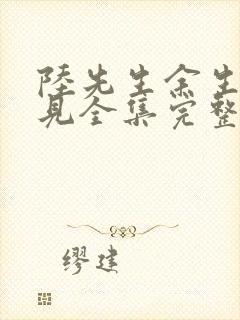 陸先生余生
見全集完整
缪建